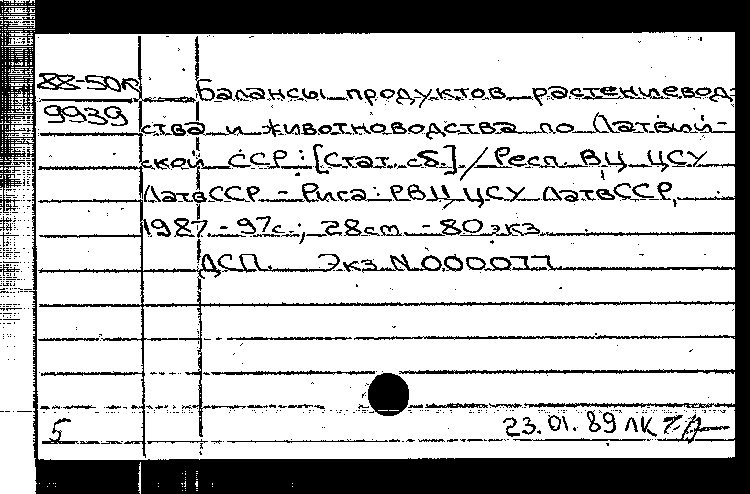 88-50п
9939
Балансы продуктов растениевод-
ства и животноводства по Латвий-
ской ССР: [Стат. сб.] / Респ. ВЦ ЦСУ
ЛатвССР - Рига: РВЦ ЦСУ ЛатвССР,
1987 - 97с.; 28см. - 80 экз
ДСП. Экз N000077
5
23.01.89 ЛК